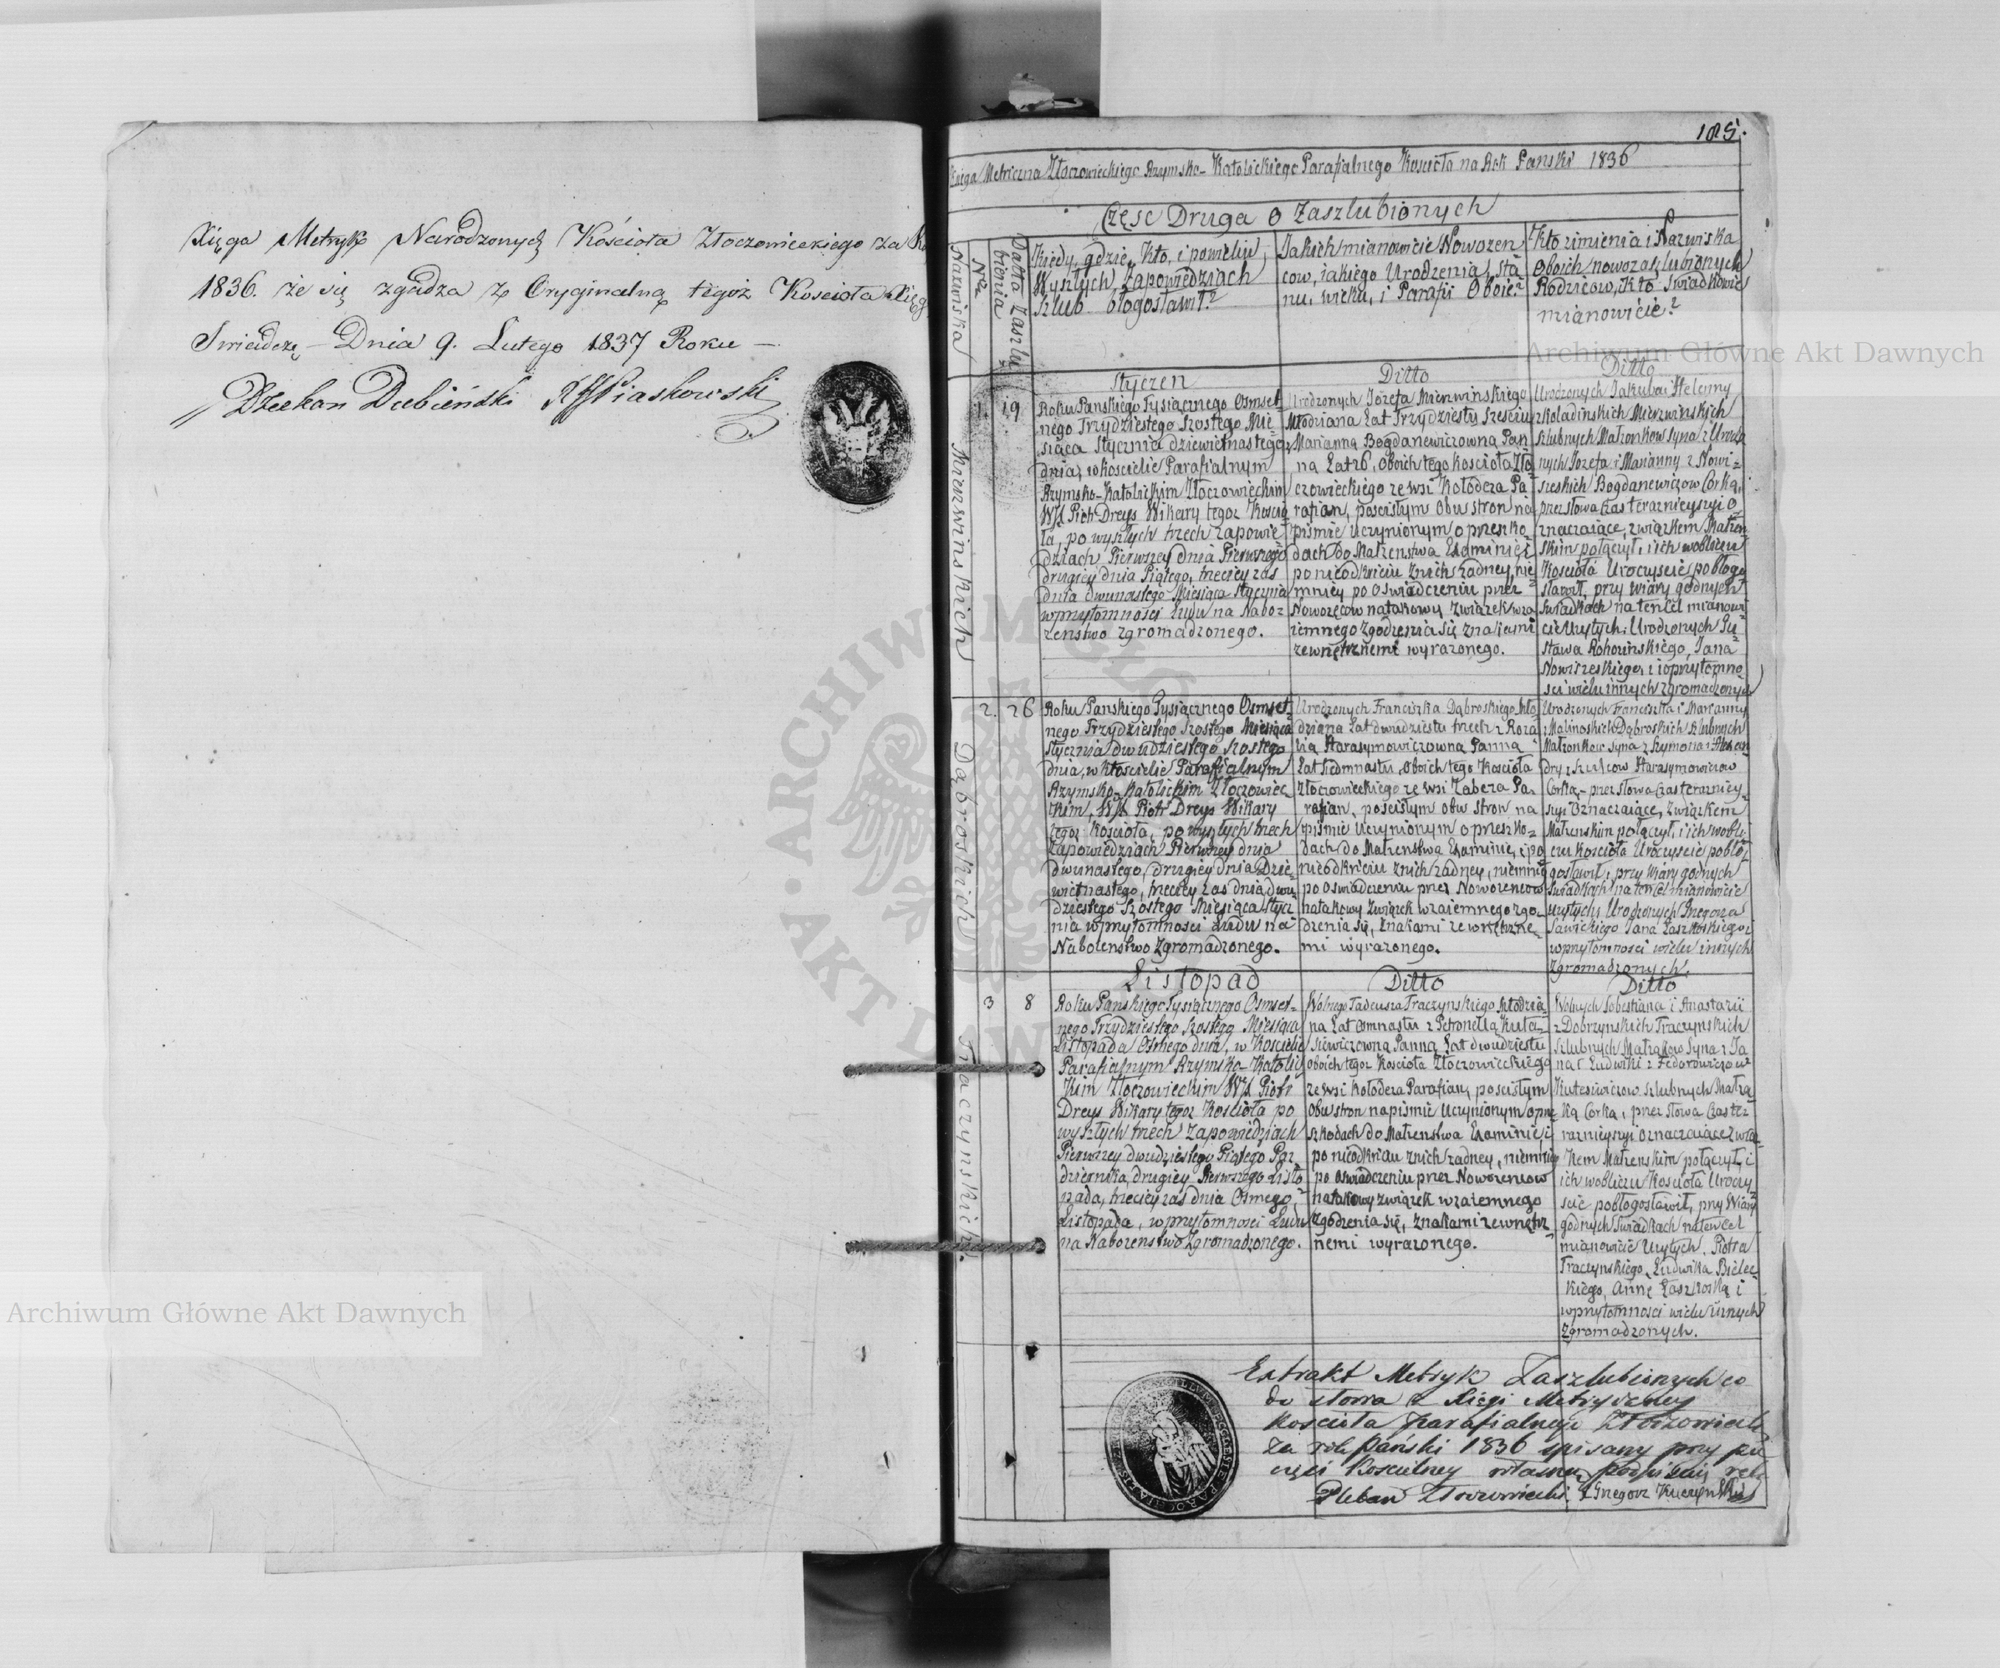 Xięga Metryk Narodzonych Kościoła Złoczowieckiego za
1836. że się zgadza z Oryginalną tegoż Kościoła Xięgą
Świadczę — Dnia 9. Lutego 1837 Roku —
Dziekan Dubieński Piaskowski
185.
Xsięga Metriczna Złoczowieckiego Rzymsko-Katolickiego Parafialnego Kosciola na Rok Panski 1836
Częsc Druga o Zaszlubionych
Nazwiska
Nra
Datta Zaszlu
bienia
Kiedy, gdzie, Kto, i powielu
Wyszłych Zapowiedziach
szlub błogosławił?
Jakich mianowicie Nowożen
cow, iakiego Urodzenia, sta
nu, wieku, i Parafii Oboie?
Kto zimienia i Nazwiska
Oboich nowozaszlubionych
Rodzicow, Kto Swiadkowie
mianowicie?
Styczeń
Ditto
Ditto
Mierzwinskich
1.
19
Roku Panskiego Tysiącznego Osmset
nego Trzydziestego Szostego Mie
siąca Stycznia dziewietnastego
dnia, wkoscielie Parafialnym
Rzymsko-Katolickim Złoczowieckim
WX Piotr Dreys Wikary tegoz Koscio
ła, po wyszłych trzech zapowie
dziach Pierwszey dnia Pierwszego
drugiey dnia Piątego, trzeciey zas
dnia dwunastego Miesiąca Stycznia
wprzytomnosci Ludu na Naboz
zenstwo zgromadzonego.
Urodzonych Jozefa Mierzwinskiego
Młodziana Lat Trzydziestu Szesciu
z Marianną Bogdanewiczowną Pan
ną Lat 26, oboich tego kosciola Zło
czowieckiego ze wsi Kołodeza Pa
rafian, poscisłym Obu stron na
pismie Uczynionym o przeszko
dach do Małzenstwa Examinie, i
ponieodkriciu Znich zadney, nie
mniey po Oswiadczeniu przez
Nowożęcow natakowy Związek wza
iemnego zgodzenia się znakami
zewnętrznemi wyrazonego.
Urodzonych Jakuba i Heleny
z Koladinskich Mierzwinskich
szlubnych Małzonkow Syna z Urodzo
nych Jozefa i Marianny z Nowi
szeskich Bogdanewiczow Corką,
przez słowa Czas teraznieyszyi o
znaczaiące, związkem Małzen
skim połączył, i ich wobliczu
Kosciola Uroczyscie pobłogo
sławił, przy Wiary godnych
Swiadkach na tencel mianowi
cie Uzytych: Urodzonych Gu
stawa Rohozinskiego, Jana
Nowiszeskiego, i iopzytomno
sci wielu innych zgromadzonych
Dąbroskich
2.
26
Roku Panskiego Tysiącznego Osmset
nego Trzydziestego Szostego Miesiąca
Stycznia dwudziestego Szostego
dnia, w Koscielie Parafialnym
Rzymsko-Katolickim Złoczowiec
kim, WX Piotr Dreys Wikary
tegoz Kosciola, po wyszłych trzech
zapowiedziach Pierwszey dnia
dwunastego, drugiey dnia Dzie
wietnastego, trzeciey zas dnia dwu
dziestego Szostego Miesiąca Stycz
nia wprzytomnosci Ludu na
Nabozenstwo Zgromadzonego.
Urodzonych Franciszka Dąbroskiego, Mło
dziana Lat dwudziestu trzech z Roza
lią Harasymowiczowną Panną
Lat Siedmnastu, Oboich tego Kosciola
Złoczowieckiego ze wsi Zabera Pa
rafian, poscisłym obu stron na
pismie Uczynionym o przeszko
dach do Małzenstwa Examinie, i po
nieodkriciu znich zadney, niemniey
po Oswiadczeniu przez Nowozencow
natakowy Związek wzaiemnego zgo
dzenia się, Znakami zewnętrzne
mi wyrazonego.
Urodzonych Franciszka i Marianny
z Malinoskich Dąbroskich szlubnych
Małzonkow Syna z Szymona i Alexan
dry z Szulcow Harasymowiczow
Corką, przez słowa Czas teraznieỹ
szyi Oznaczaiące, Związkem
Małzenskim połączył, i ich wobli
czu kosciola Uroczyscie pobło
gosławił, przy Wiary godnych
Swiadkach na tencel mianowicie
Uzytych: Urodzonych Grzegorza
Sawickiego Jana Łaszkoskiego i
wprzytomnosci wielu innych
zgromadzonych.
Listopad
Ditto
Ditto
Traczynskich.
3
8
Roku Panskiego Tysiącznego Osmset
nego Trzydziestego Szostego Miesiąca
Listopada Osmego dnia, w Koscielie
Parafialnym Rzymsko-Katolic
kim Złoczowieckim WX Piotr
Dreys Wikary tegoz Kosciola po
wyszłych trzech Zapowiedziach
Pierwszey dwudziestego Piątego Paz
dziernika, drugiey Pierwszego Listo
pada, trzeciey zas dnia Osmego
Listopada, wprzytomnosci Ludu
na Nabozenstwo Zgromadzonego.
Wolnego Tadeusza Traczynskiego Młodzia
na Lat Osmnastu z Petronellą Kute
siewiczowną Panną Lat dwudziestu
oboich tegoz Kosciola Złoczowieckiego
ze wsi Kołodeza Parafian, poscisłym
Obu stron na pismie Uczynionym oprze
szkodach do Małzenstwa Examinie, i
po nieodkriciu znich zadney, niemniey
po oswiadczeniu przez Nowozencow
natakowy związek wzaiemnego
zgodzenia się, znakami zewnętrz
nemi wyrazonego.
Wolnych Sebestiana i Anastazii
z Dobrzynskich Traczynskich
szlubnych Małząkow Syna z Ja
na i Ludwiki z Fedorowiczow
Kutesiewiczow szlubnych Małzą
ką Corką, przez słowa Czas te
raznieyszyi Oznaczaiące Zwią
kem Małzenskim połączył, i
ich wobliczu Kosciola Uroczy
scie pobłogosławił, przy Wiary
godnych Swiadkach natencel
mianowicie Uzytych. Piotra
Traczynskiego, Ludwika Bielec
kiego, Annę Łaszkoską i
wprzytomnosci wielu innych
zgromadzonych.
Extrakt Metryk Zaszlubionych co
do słowa z Xięgi Metryczney
Kościoła parafialnego Złoczowieck
za rok Pański 1836 spisany przy pie
częci Kościelney własną podpisuię ręką
Pleban Złoczowiecki X Grzegorz Kuczyński
Archiwum Główne Akt Dawnych
Archiwum Główne Akt Dawnych
ARCHIWUM GŁÓWNE AKT DAWNYCH